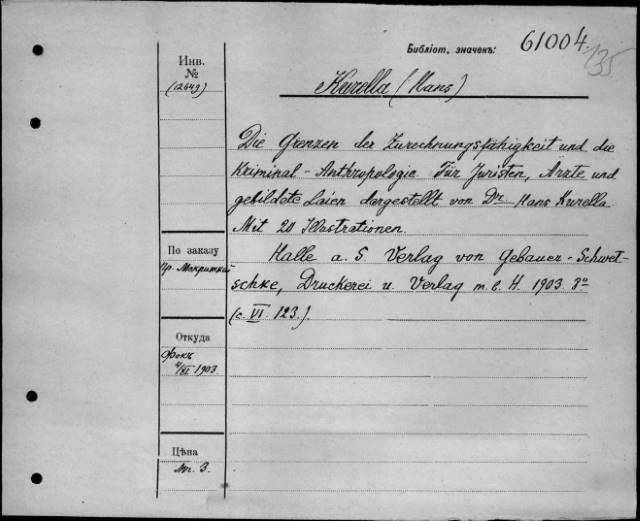 Библіот. значекъ: 61004
135
Инв.
№
(12649)
Kurella (Hans)
Die Grenzen der Zurechnungsfähigkeit und die
Kriminal-Anthropologie Für Juristen, Ärzte und
gebildete Laien dargestellt von Dr Hans Kurella
Mit 20 Illustrationen.
По заказу
Halle a. S. Verlag von Gebauer-Schwet-
schke, Druckerei u. Verlag m. b. H. 1903. 8º
(c. VI. 123.)
Откуда
Фокъ
1903
Цѣна
Мр. 3.